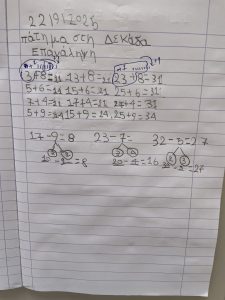 22|9|2025
πάτημα στη Δεκάδα
Επανάληψη
3+8=11 13+8=21 23+8=31
5+6=11 15+6=21 25+6=31
7+4=11 17+4=21 27+4=31
5+9=14 15+9=24 25+9=34
17-9=8 23-7= 32-5=27
10-2=8 20-4=16 -3=27